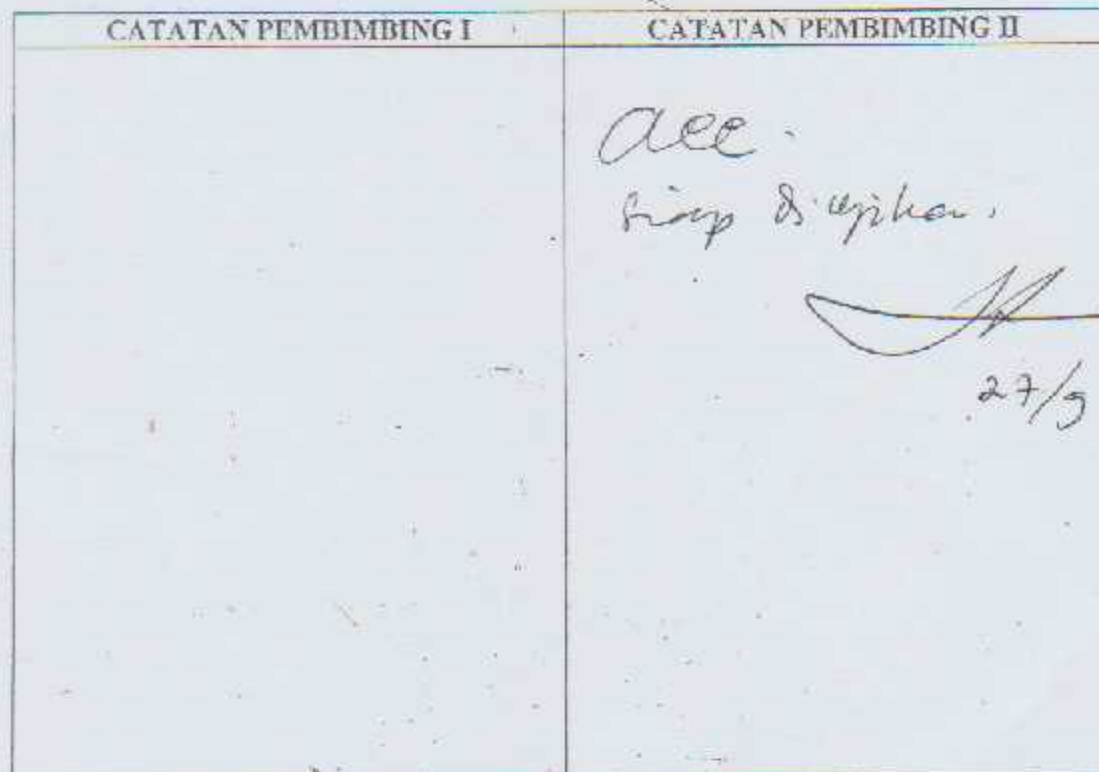 CATATAN PEMBIMBING I
CATATAN PEMBIMBING II
acc.
Siap diujikan.
27/9